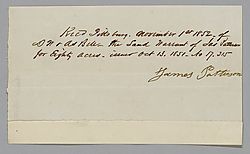 Rec'd Galesburg, November 1st 1852, of
the Land Warrant of Jas Patterson
for Eighty acres. issued Oct 13. 1851. No 17,315
James Patterson